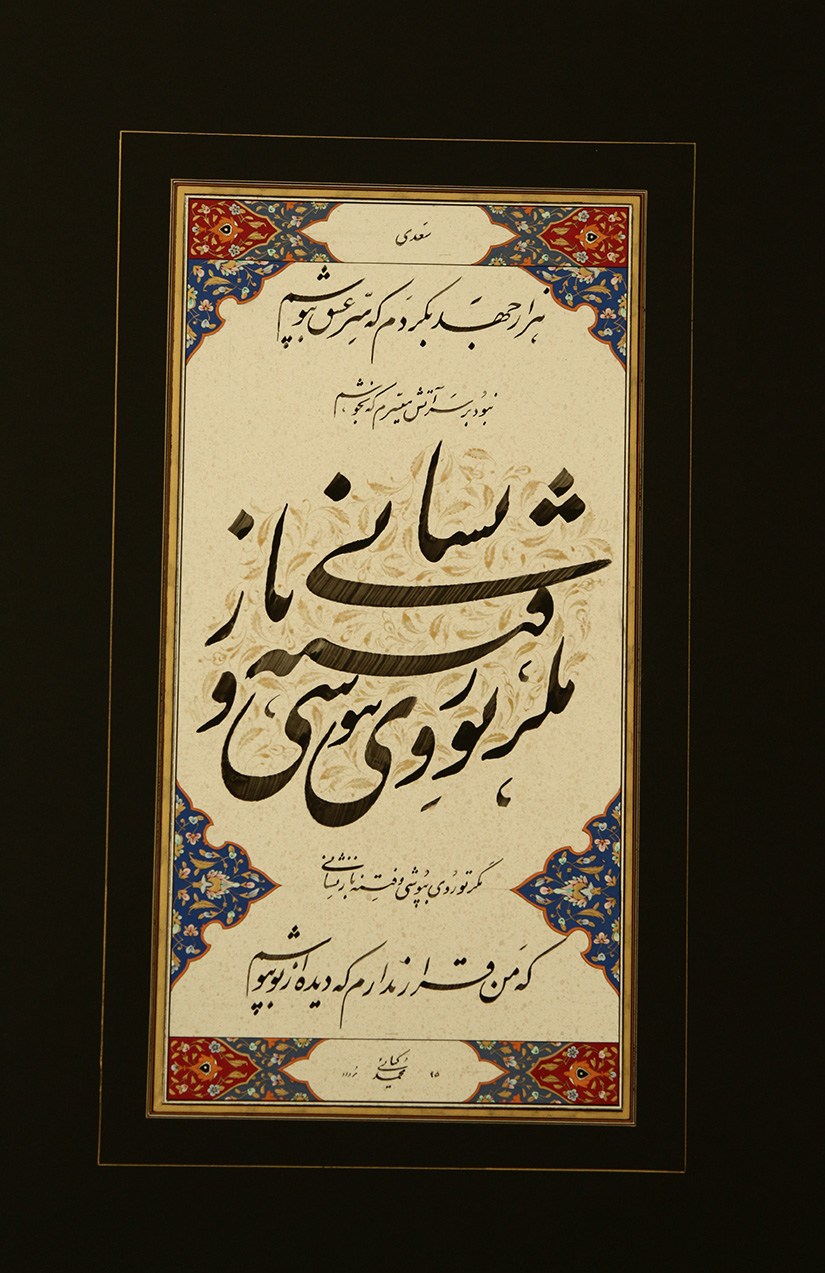 سعدی
هزار جهد بکردم که سِرّ عشق بپوشم
نبود بر سر آتش میسرم که نجوشم
مگر تو روی بپوشی و فتنه باز نشانی
مگر تو روی بپوشی و فتنه باز نشانی
که من قرار ندارم که دیده از تو بپوشم
محمد ۹۵